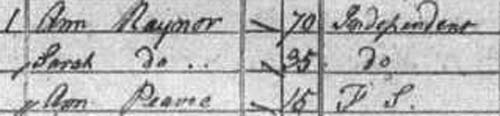 1 Ann Raynor 70 Independent
Sarah do .. 35 do
Ann Pearce 15 F S.